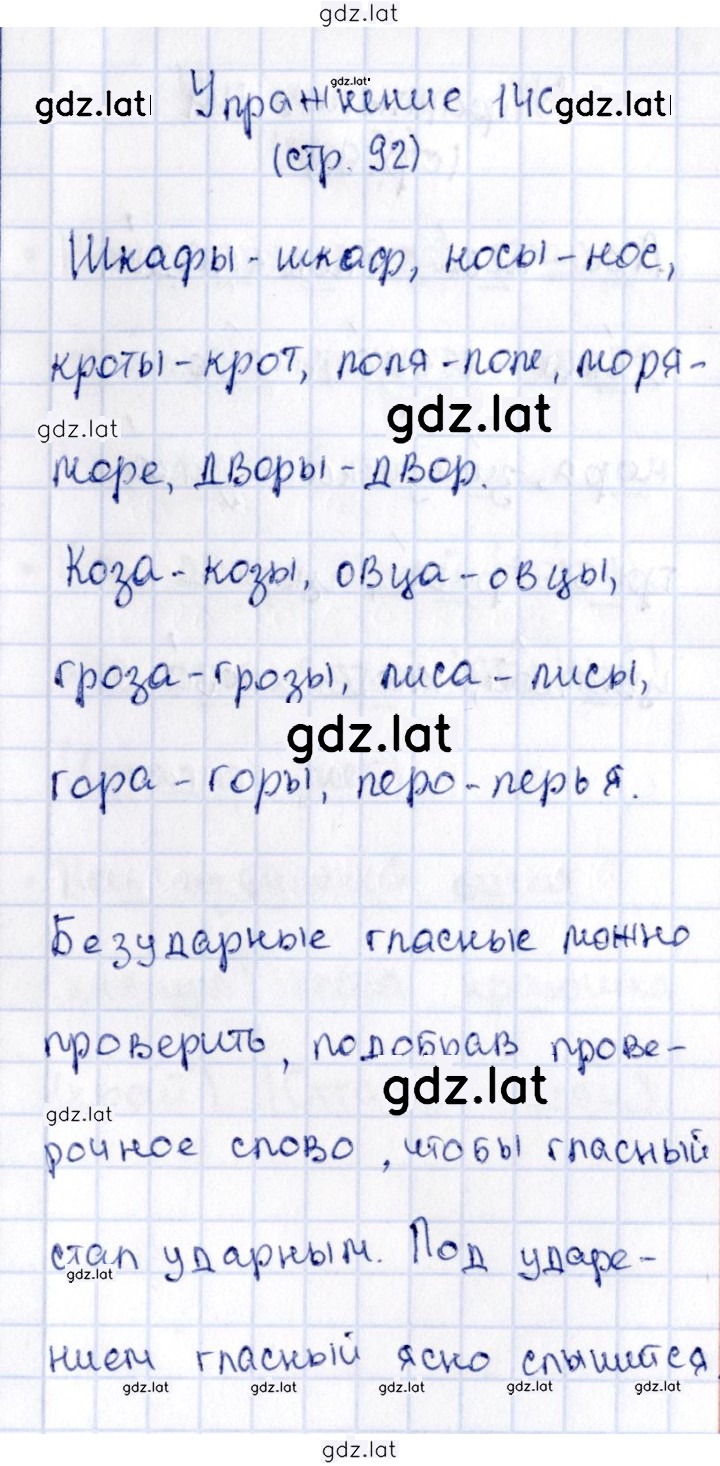 gdz.lat
gdz.lat
gdz.lat Упражнение 140 gdz.lat
(стр. 92)
Шкафы - шкаф, носы - нос,
кроты - крот, поля - поле, моря -
gdz.lat
gdz.lat
море, дворы - двор.
Коза - козы, овца - овцы,
гроза - грозы, лиса - лисы,
gdz.lat
гора - горы, перо - перья.
Безударные гласные можно
проверить, подобрав прове-
gdz.lat
gdz.lat
рочное слово, чтобы гласный
стал ударным. Под ударе-
gdz.lat
нием гласный ясно слышится
gdz.lat gdz.lat gdz.lat gdz.lat gdz.lat
gdz.lat